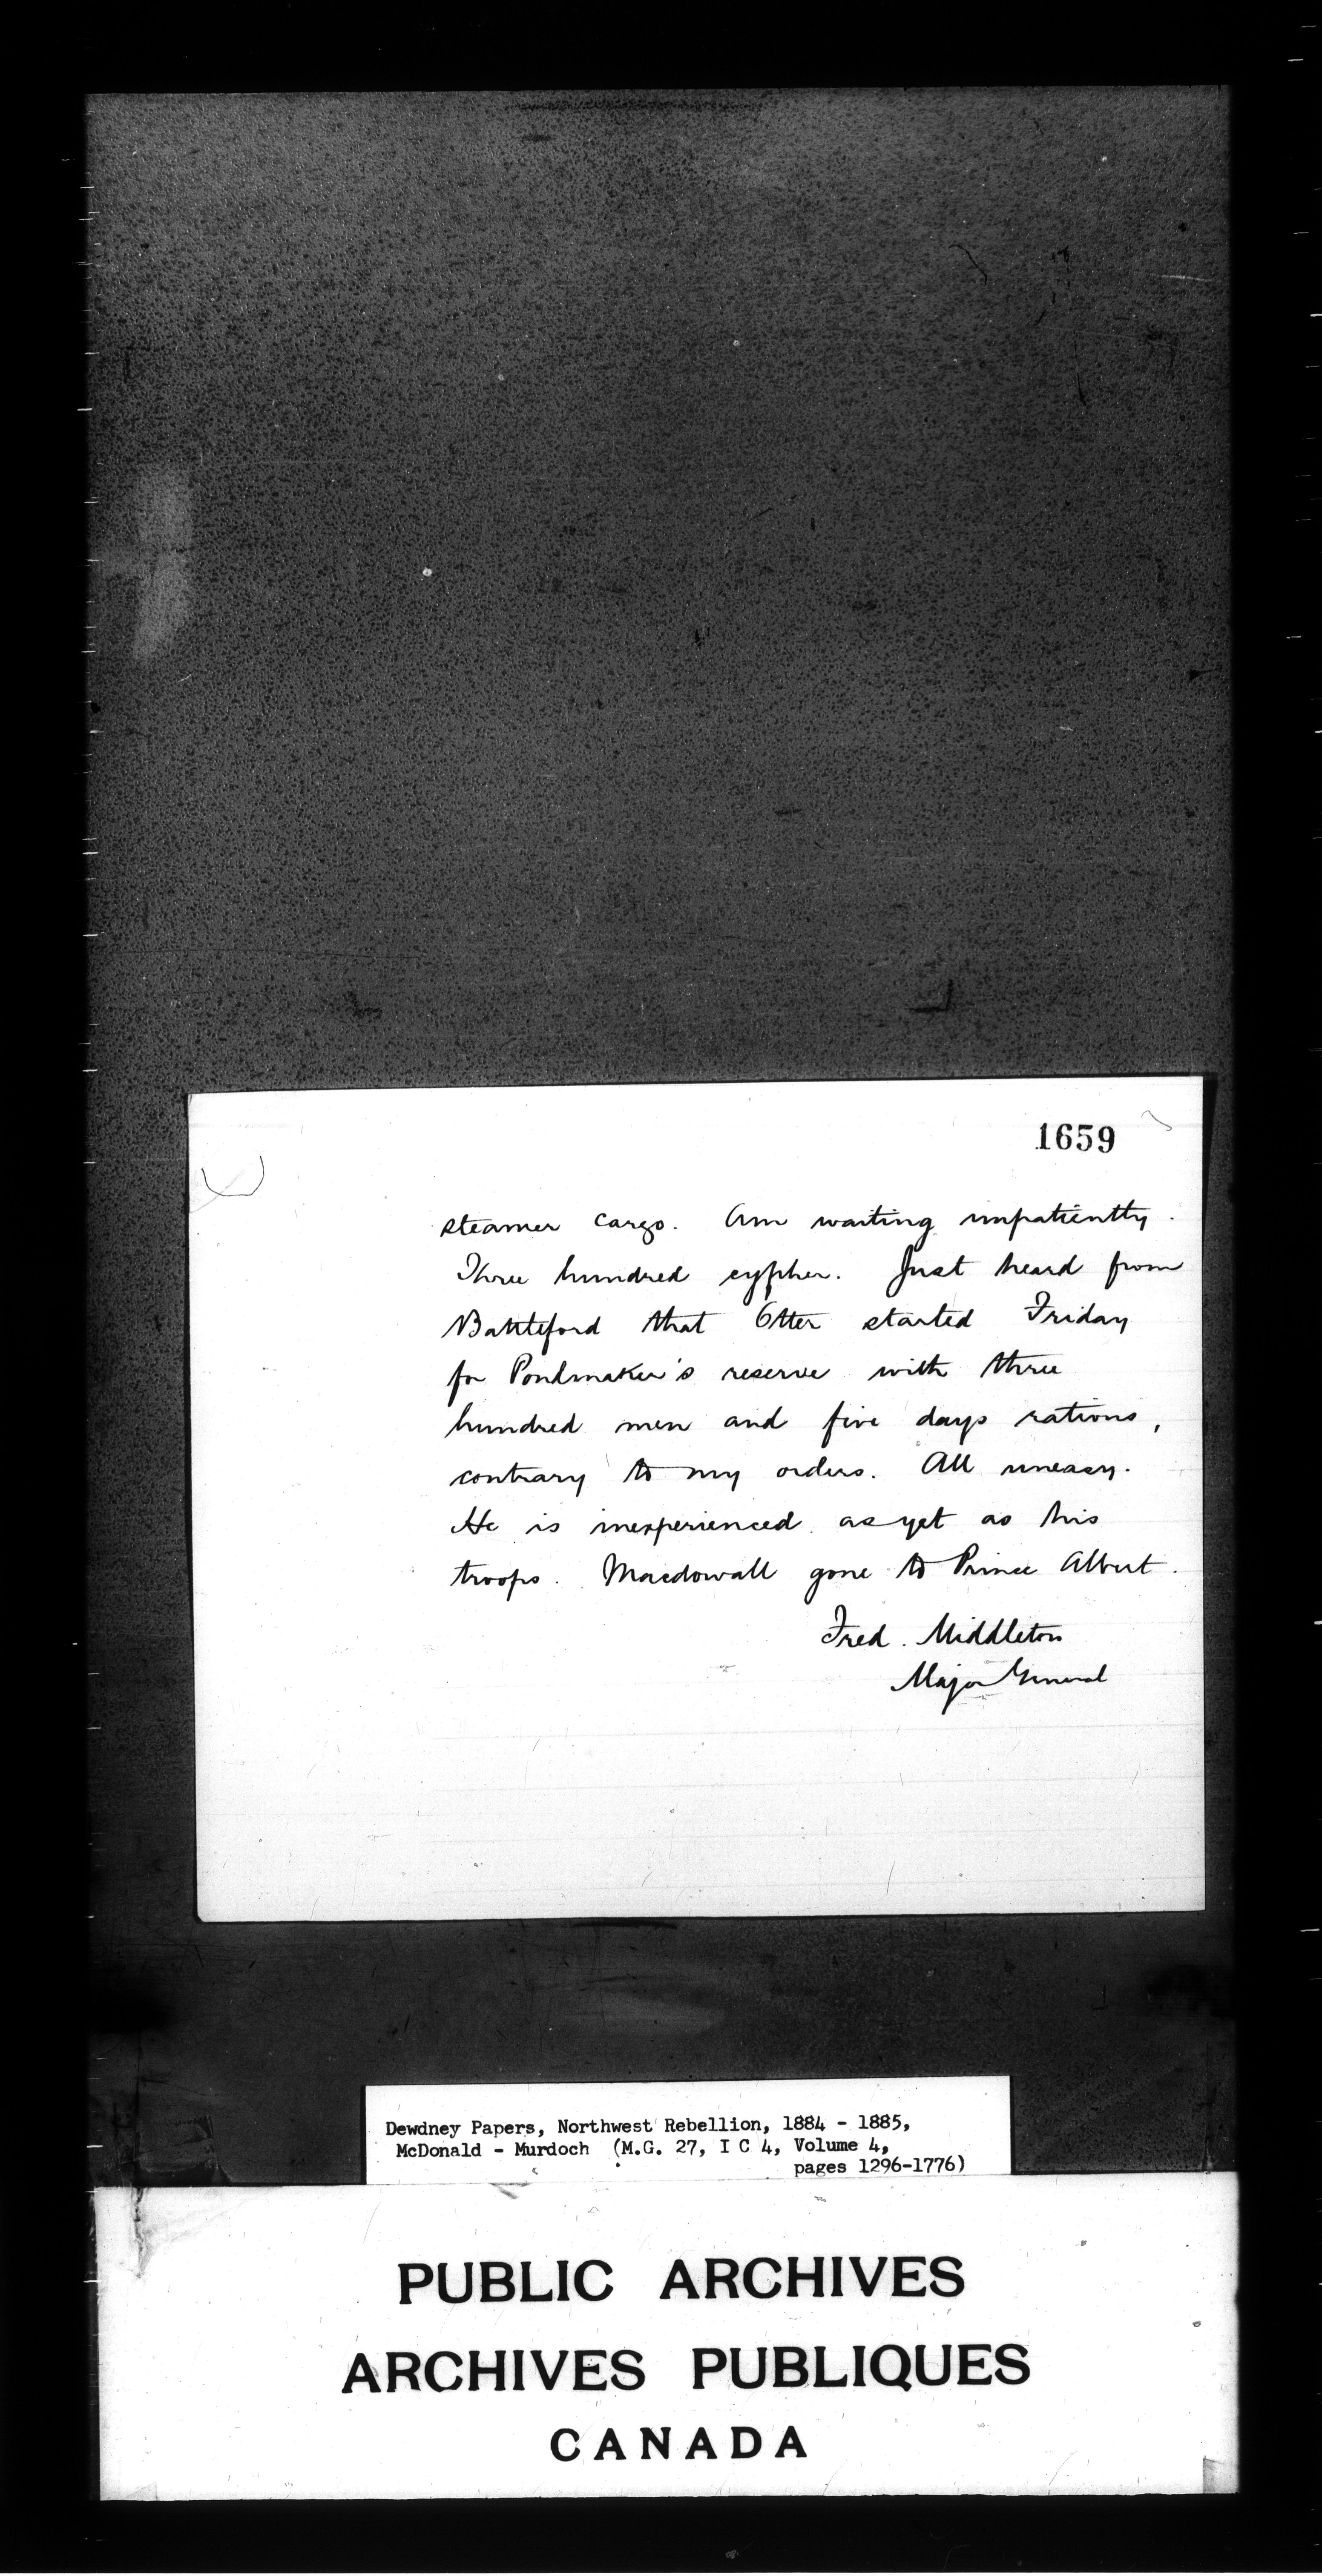 1659
steamer cargo. Am waiting impatiently.
Three hundred cypher. Just heard from
Battleford that Otter started Friday
for Pondmaker's reserve with three
hundred men and five days rations,
contrary to my orders. All uneasy.
He is inexperienced as yet as his
troops. Macdowall gone to Prince Albert.
Fred. Middleton
Major General
Dewdney Papers, Northwest Rebellion, 1884 - 1885,
McDonald - Murdoch (M.G. 27, I C 4, Volume 4,
pages 1296-1776)
PUBLIC ARCHIVES
ARCHIVES PUBLIQUES
CANADA